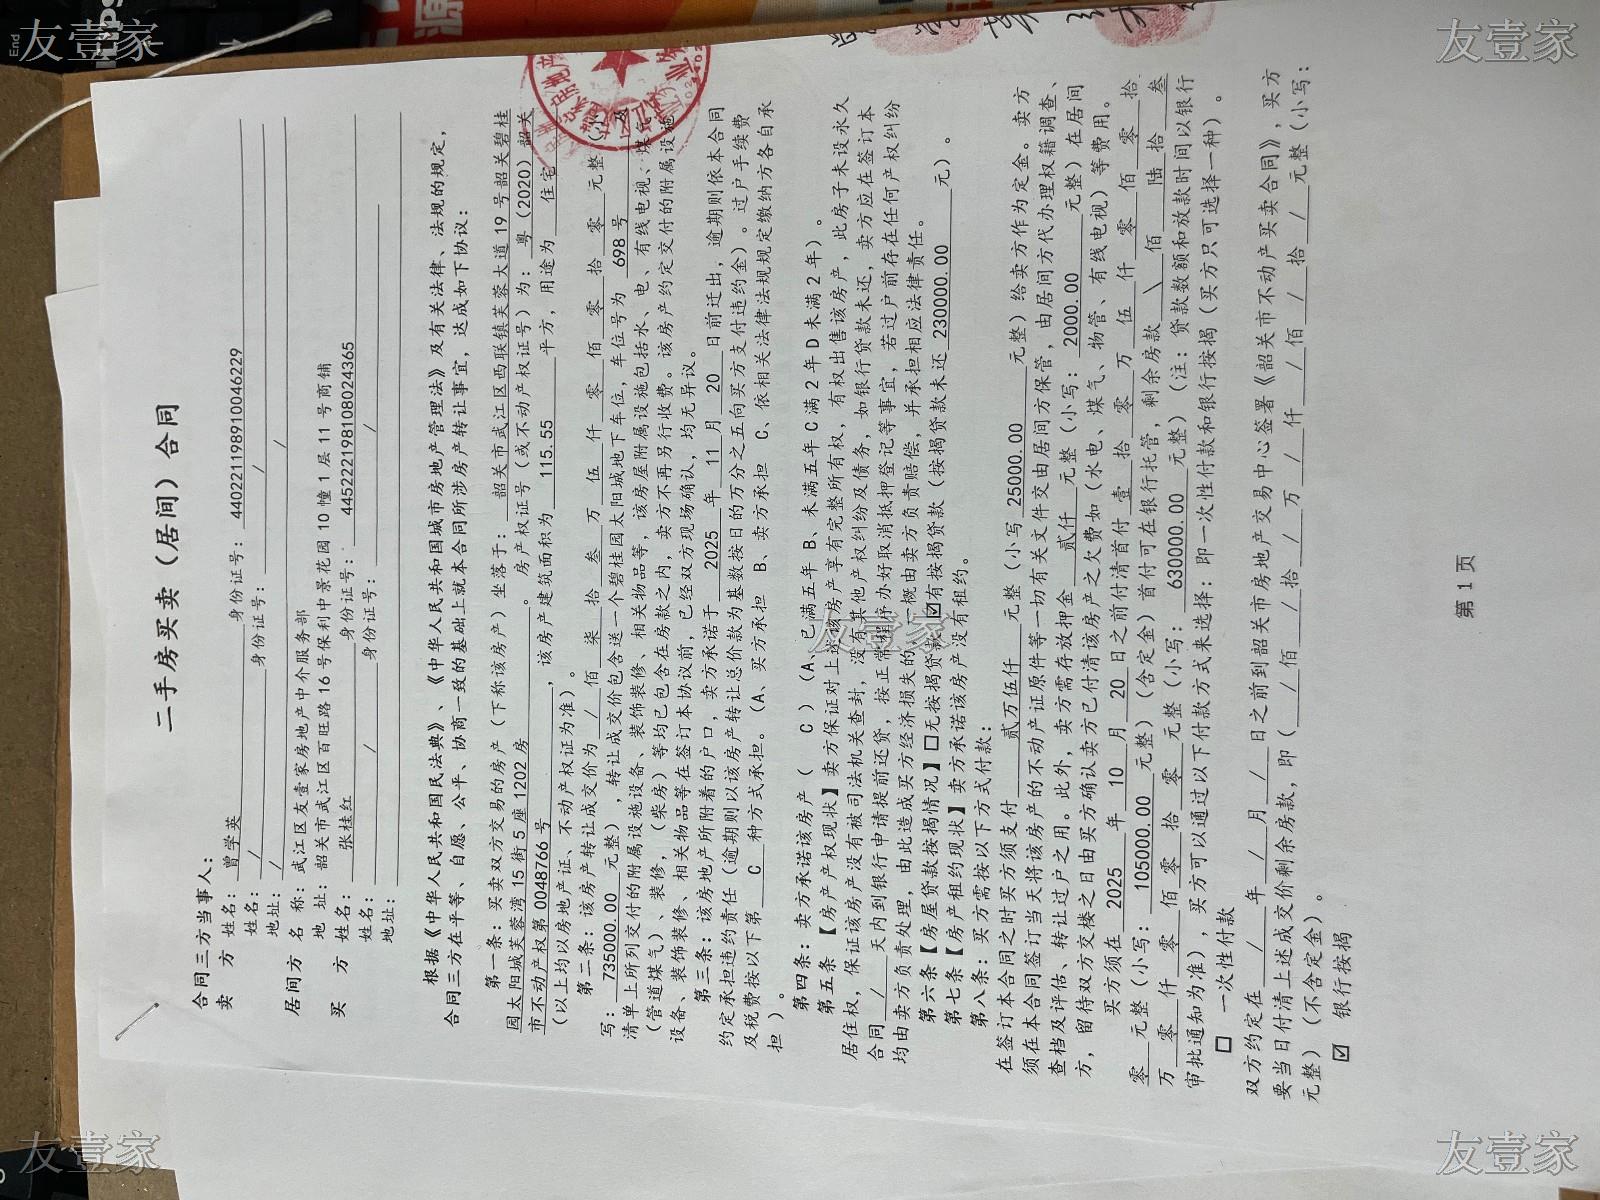 二手房买卖（居间）合同
合同三方当事人：
卖 方 姓名：曾学英 身份证号：440221198910046229
姓名： / 身份证号： /
地址： / /
居间方 名 称：武江区友壹家房地产中介服务部
地 址：韶关市武江区百旺路16号保利中景花园10幢1层11号商铺
买 方 姓名：张桂红 身份证号：445222198108024365
姓名： / 身份证号： /
地址：
根据《中华人民共和国民法典》、《中华人民共和国城市房地产管理法》及有关法律、法规的规定，
合同三方在平等、自愿、公平、协商一致的基础上就本合同所涉房产转让事宜，达成如下协议：
第一条：买卖双方交易的房产（下称该房产）坐落于：韶关市武江区西联镇芙蓉大道19号韶关碧桂
园太阳城芙蓉湾15街5座1202房。房产权证号（或不动产权证号）为：粤（2020）韶关
市不动产权第0048766号，该房产建筑面积为 115.55 平方，用途为 住宅
（以上均以房地产证、不动产权证为准）。
第二条：该房产转让成交价为 / 佰 柒 拾 叁 万 伍 仟 零 佰 零 拾 零 元整（小
写：735000.00 元整），转让成交价包含送一个碧桂园太阳城地下车位，车位号为 698号 及
清单上所列交付的附属设施设备、装饰装修、相关物品等，该房屋附属设施包括水、电、有线电视、煤气
（管道煤气）、装修，（柴房）等均已包含在房款之内，卖方不再另行收费。该房产约定交付的附属设施
设备、装饰装修、相关物品等在签订本协议前，已经双方现场确认，均无异议。
第三条：该房地产所附着的户口，卖方承诺于 2025 年 11 月 20 日前迁出，逾期则依本合同
约定承担违约责任（逾期则以该房产转让总价款为基数按日的万分之五向买方支付违约金）。过户手续费
及税费按以下第 C 种方式承担。（A、买方承担 B、卖方承担 C、依相关法律法规规定缴纳方各自承
担）。
第四条：卖方承诺该房产（ C ）（A、已满五年 B、未满五年 C 满2年 D 未满2年）。
第五条【房产产权现状】卖方保证对上述该房产享有完整所有权，有权出售该房产，此房子未设永久
居住权，保证该房产没有被司法机关查封，没有其他产权纠纷及债务，如银行贷款未还，卖方应在签订本
合同 / 天内到银行申请提前还贷，按正常程序办好取消抵押登记等事宜，若过户前存在任何产权纠纷
均由卖方负责处理，由此造成买方经济损失的，概由卖方负责赔偿，并承担相应法律责任。
第六条【房屋贷款按揭情况】☐无按揭贷款 ☑有按揭贷款（按揭贷款未还 230000.00 元）。
第七条【房产租约现状】卖方承诺该房产没有租约。
第八条：买方需按以下方式付款：
在签订本合同之时买方须支付 贰万伍仟 元整（小写 25000.00 元整）给卖方作为定金。卖方
须在本合同签订当天将该房产的不动产证原件等一切有关文件交由居间方保管，由居间方代办理权籍调查、
查档及评估、转让过户之用。此外，卖方需存放押金 贰仟 元整（小写：2000.00 元整）在居间
方，留待双方交楼之日由买方确认卖方已付清该房产之欠费如（水电、煤气、物管、有线电视）等费用。
买方须在 2025 年 10 月 20 日之前付清首付 壹 拾 零 万 伍 仟 零 佰 零 拾
零 元整（小写：105000.00 元整）（含定金）首付可在银行托管，剩余房款 \ 佰 陆 拾 叁
万 零 仟 零 佰 零 拾 零 元整（小写：630000.00 元整）（注：贷款数额和放款时间以银行
审批通知为准），买方可以通过以下付款方式来选择：即一次性付款和银行按揭（买方只可选择一种）。
☐ 一次性付款
双方约定在 / 年 / 月 / 日之前到韶关市房地产交易中心签署《韶关市不动产买卖合同》，买方
要当日付清上述成交价剩余房款，即（ / 佰 / 拾 / 万 / 仟 / 佰 / 拾 / 元整（小写：
元整）（不含定金）。
☑ 银行按揭
第 1 页
友壹家
友壹家
友壹家
友壹家
友壹家